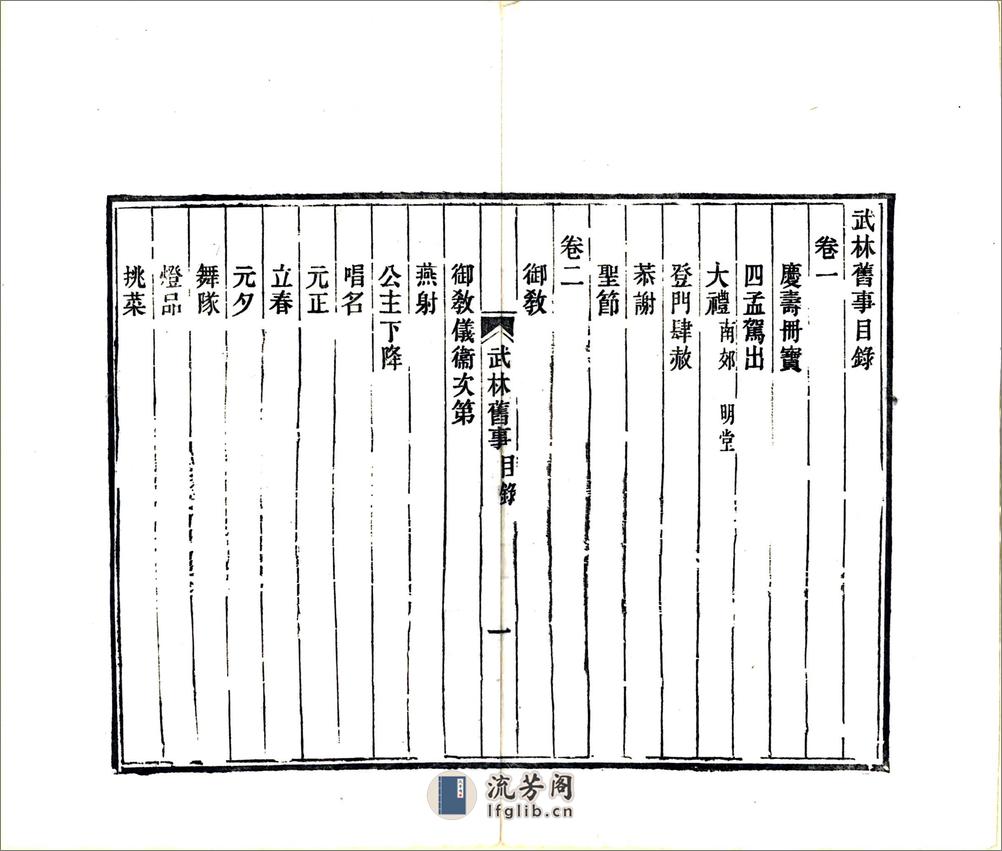 武林舊事目錄
卷一
慶壽冊寶
四孟駕出
大禮南郊　明堂
登門肆赦
恭謝
聖節
卷二
御教
武林舊事 目錄 一
御教儀衞次第
燕射
公主下降
唱名
元正
立春
元夕
舞隊
燈品
挑菜
流芳阁
lfglib.cn